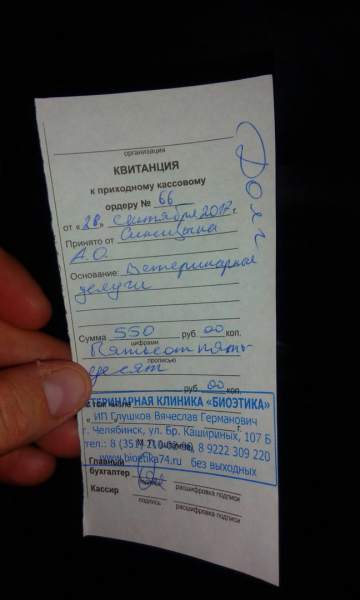 организация
КВИТАНЦИЯ
к приходному кассовому
ордеру № 66
от « 28 » сентября 2017 г.
Принято от Синицына
А.О.
Основание: Ветеринарные
услуги
Сумма 550 руб. 00 коп.
цифрами
Пятьсот пять
прописью
десят
руб. 00 коп.
ВЕТЕРИНАРНАЯ КЛИНИКА «БИОЭТИКА»
ИП Глушков Вячеслав Германович
г. Челябинск, ул. Бр. Кашириных, 107 Б
тел.: 8 (351) 8 9222 309 220
www.bioetika74.ru без выходных
Главный
бухгалтер
подпись расшифровка подписи
Кассир
подпись расшифровка подписи
Долг